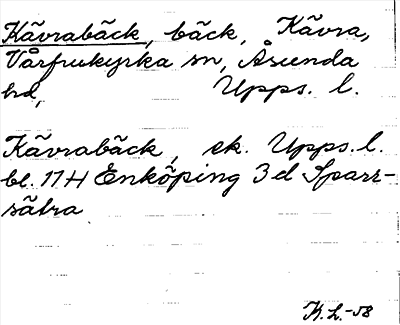 Kävrabäck, bäck, Kävra,
Vårfrukyrka sn, Åsunda
hd, Upps. l.
Kävrabäck, ek. Upps. l.
bl. 11H Enköping 3d Sparr-
sätra
K.L.-58